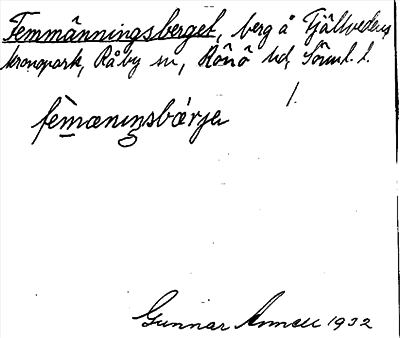 Femmänningsberget, berg å Tjällvedens
kronopark, Råby sn, Rönö hd, Söml. l.
1.
fèmæninsbárje
Gunnar Annell 1932